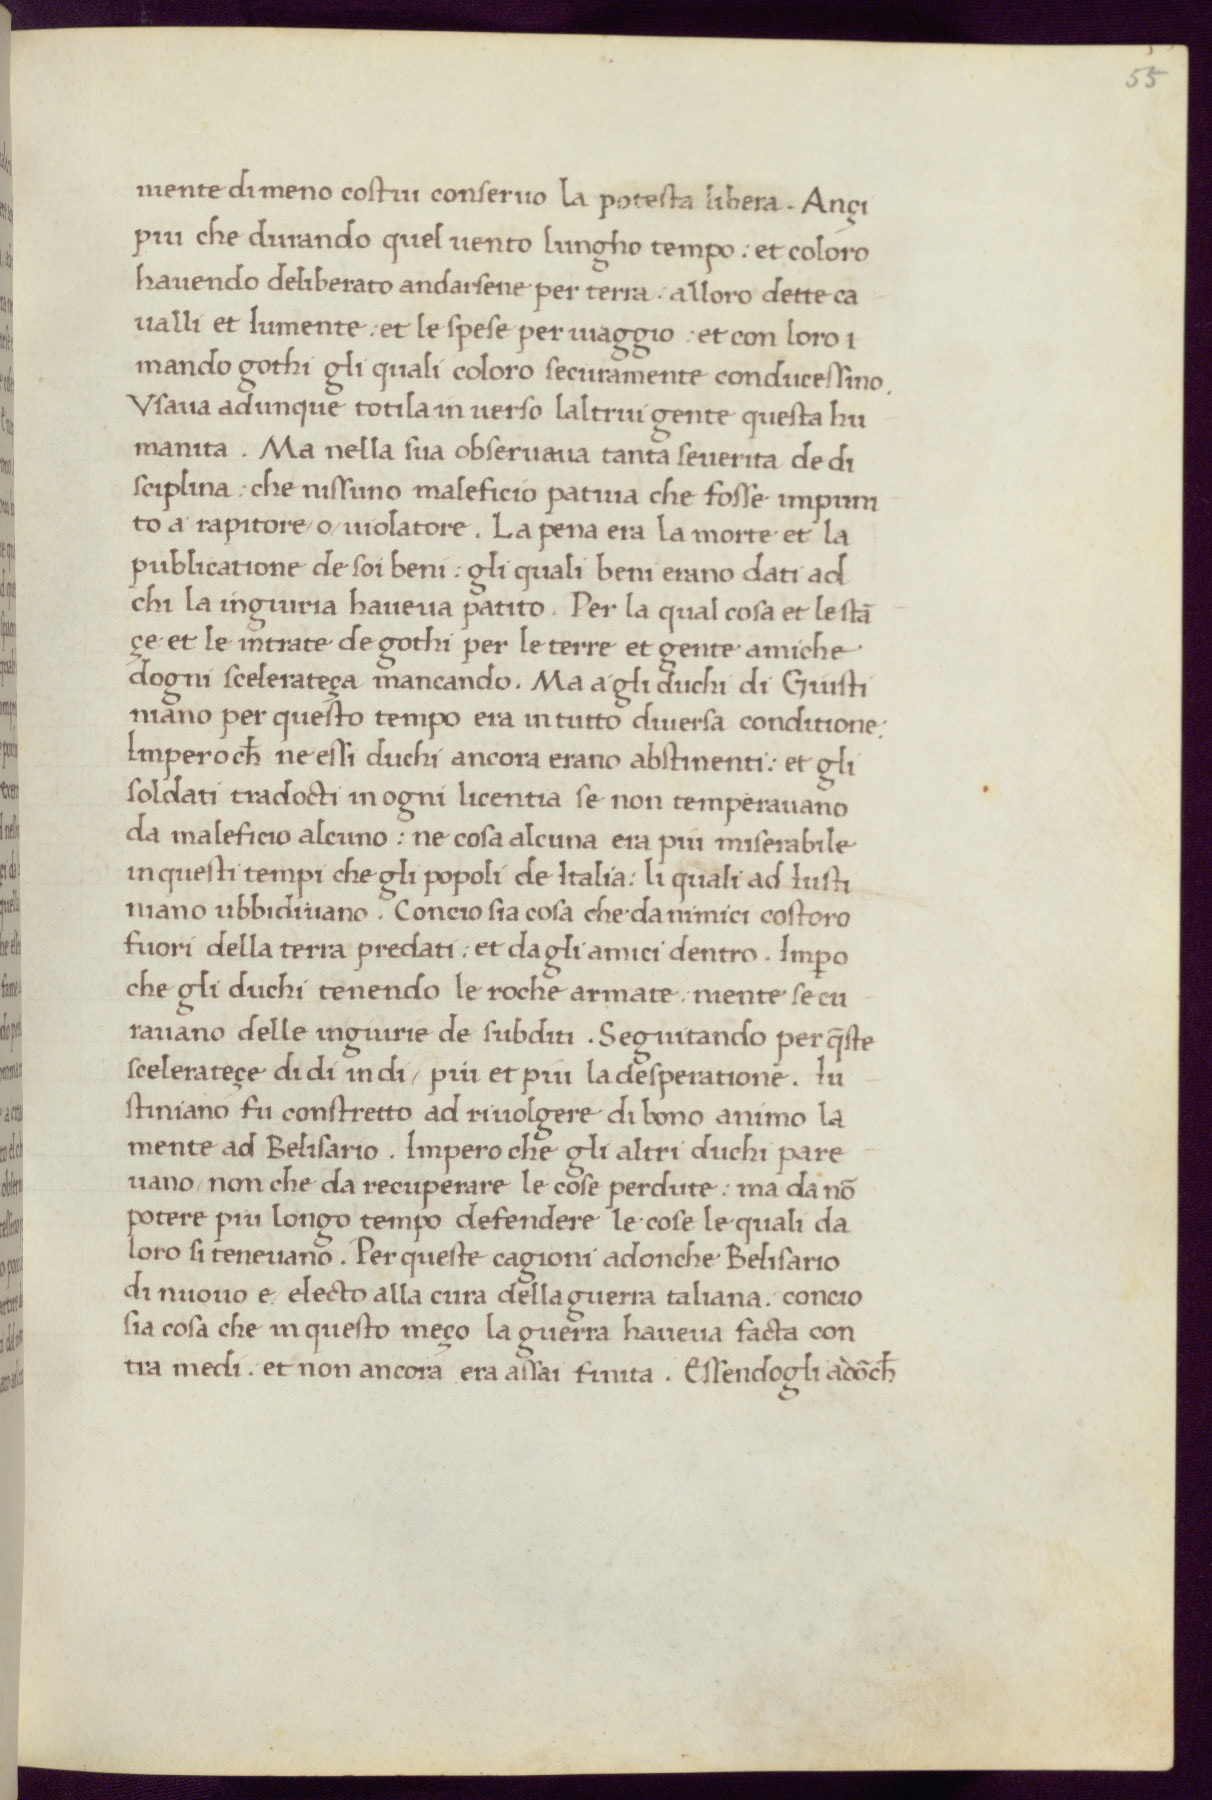 55
mente di meno costui conseruo la potesta libera. Ançi
piu che durando quel uento lungho tempo: et coloro
hauendo deliberato andarsene per terra. alloro dette ca
ualli et Iumente: et le spese per uiaggio: et con loro i
mando gothi gli quali coloro securamente conducessino.
Vsaua adunque totila in uerso laltrui gente questa hu
manita. Ma nella sua obseruaua tanta seuerita de di
sciplina: che nissuno maleficio patiua che fosse impuni
to a rapitore/o/uiolatore. La pena era la morte et la
publicatione de soi beni: gli quali beni erano dati ad
chi la ingiuria haueua patito. Per la qual cosa et le stā
çe et le intrate de gothi per le terre et gente amiche
dogni scelerateça mancando. Ma a gli duchi di Giusti
niano per questo tempo era in tutto diuersa conditione:
Imperoch̄ ne essi duchi ancora erano abstinenti: et gli
soldati tradocti in ogni licentia se non temperauano
da maleficio alcuno: ne cosa alcuna era piu miserabile
in questi tempi che gli popoli de Italia: li quali ad Iusti
niano ubbidiuano. Concio sia cosa che da nimici costoro
fuori della terra predati: et da gli amici dentro. Imꝑo
che gli duchi tenendo le roche armate. niente se cu
rauano delle ingiurie de subditi. Seguitando per q̄ste
scelerateçe di di in di/ piu et piu la desperatione. Iu
stiniano fu constretto ad riuolgere di bono animo la
mente ad Belisario. Impero che gli altri duchi pare
uano/non che da recuperare le cose perdute: ma da nō
potere piu longo tempo defendere le cose le quali da
loro si teneuano. Per queste cagioni adonche Belisario
di nuouo e electo alla cura della guerra taliana. concio
sia cosa che in questo meço la guerra haueua facta con
tra medi. et non ancora era assai finita. Essendogli adōch̄